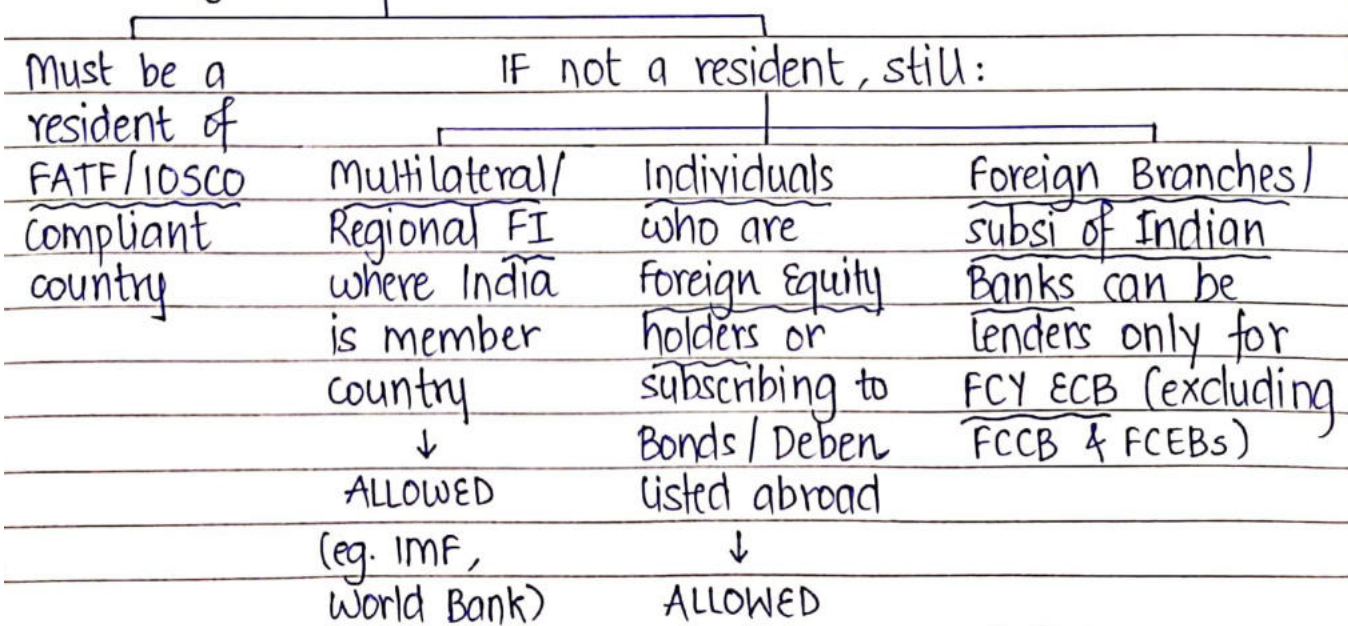 Must be a
resident of
FATF/IOSCO
compliant
country
IF not a resident, still:
Multilateral/
Regional FI
where India
is member
country
↓
ALLOWED
(eg. IMF,
World Bank)
Individuals
who are
Foreign Equity
holders or
subscribing to
Bonds/Deben
listed abroad
↓
ALLOWED
Foreign Branches/
subsi of Indian
Banks can be
lenders only for
FCY ECB (excluding
FCCB & FCEBs)